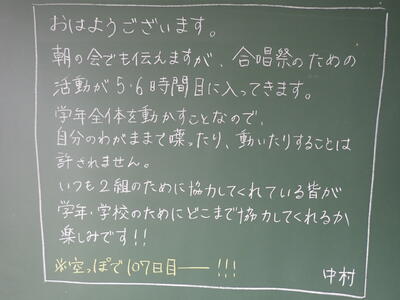 おはようございます。
朝の会でも伝えますが、合唱祭のための
活動が5・6時間目に入ってきます。
学年全体を動かすことなので、
自分のわがままで喋ったり、動いたりすることは
許されません。
いつも2組のために協力してくれている皆が
学年・学校のためにどこまで協力してくれるか
楽しみです!!
※空っぽで107日目――!!!
中村